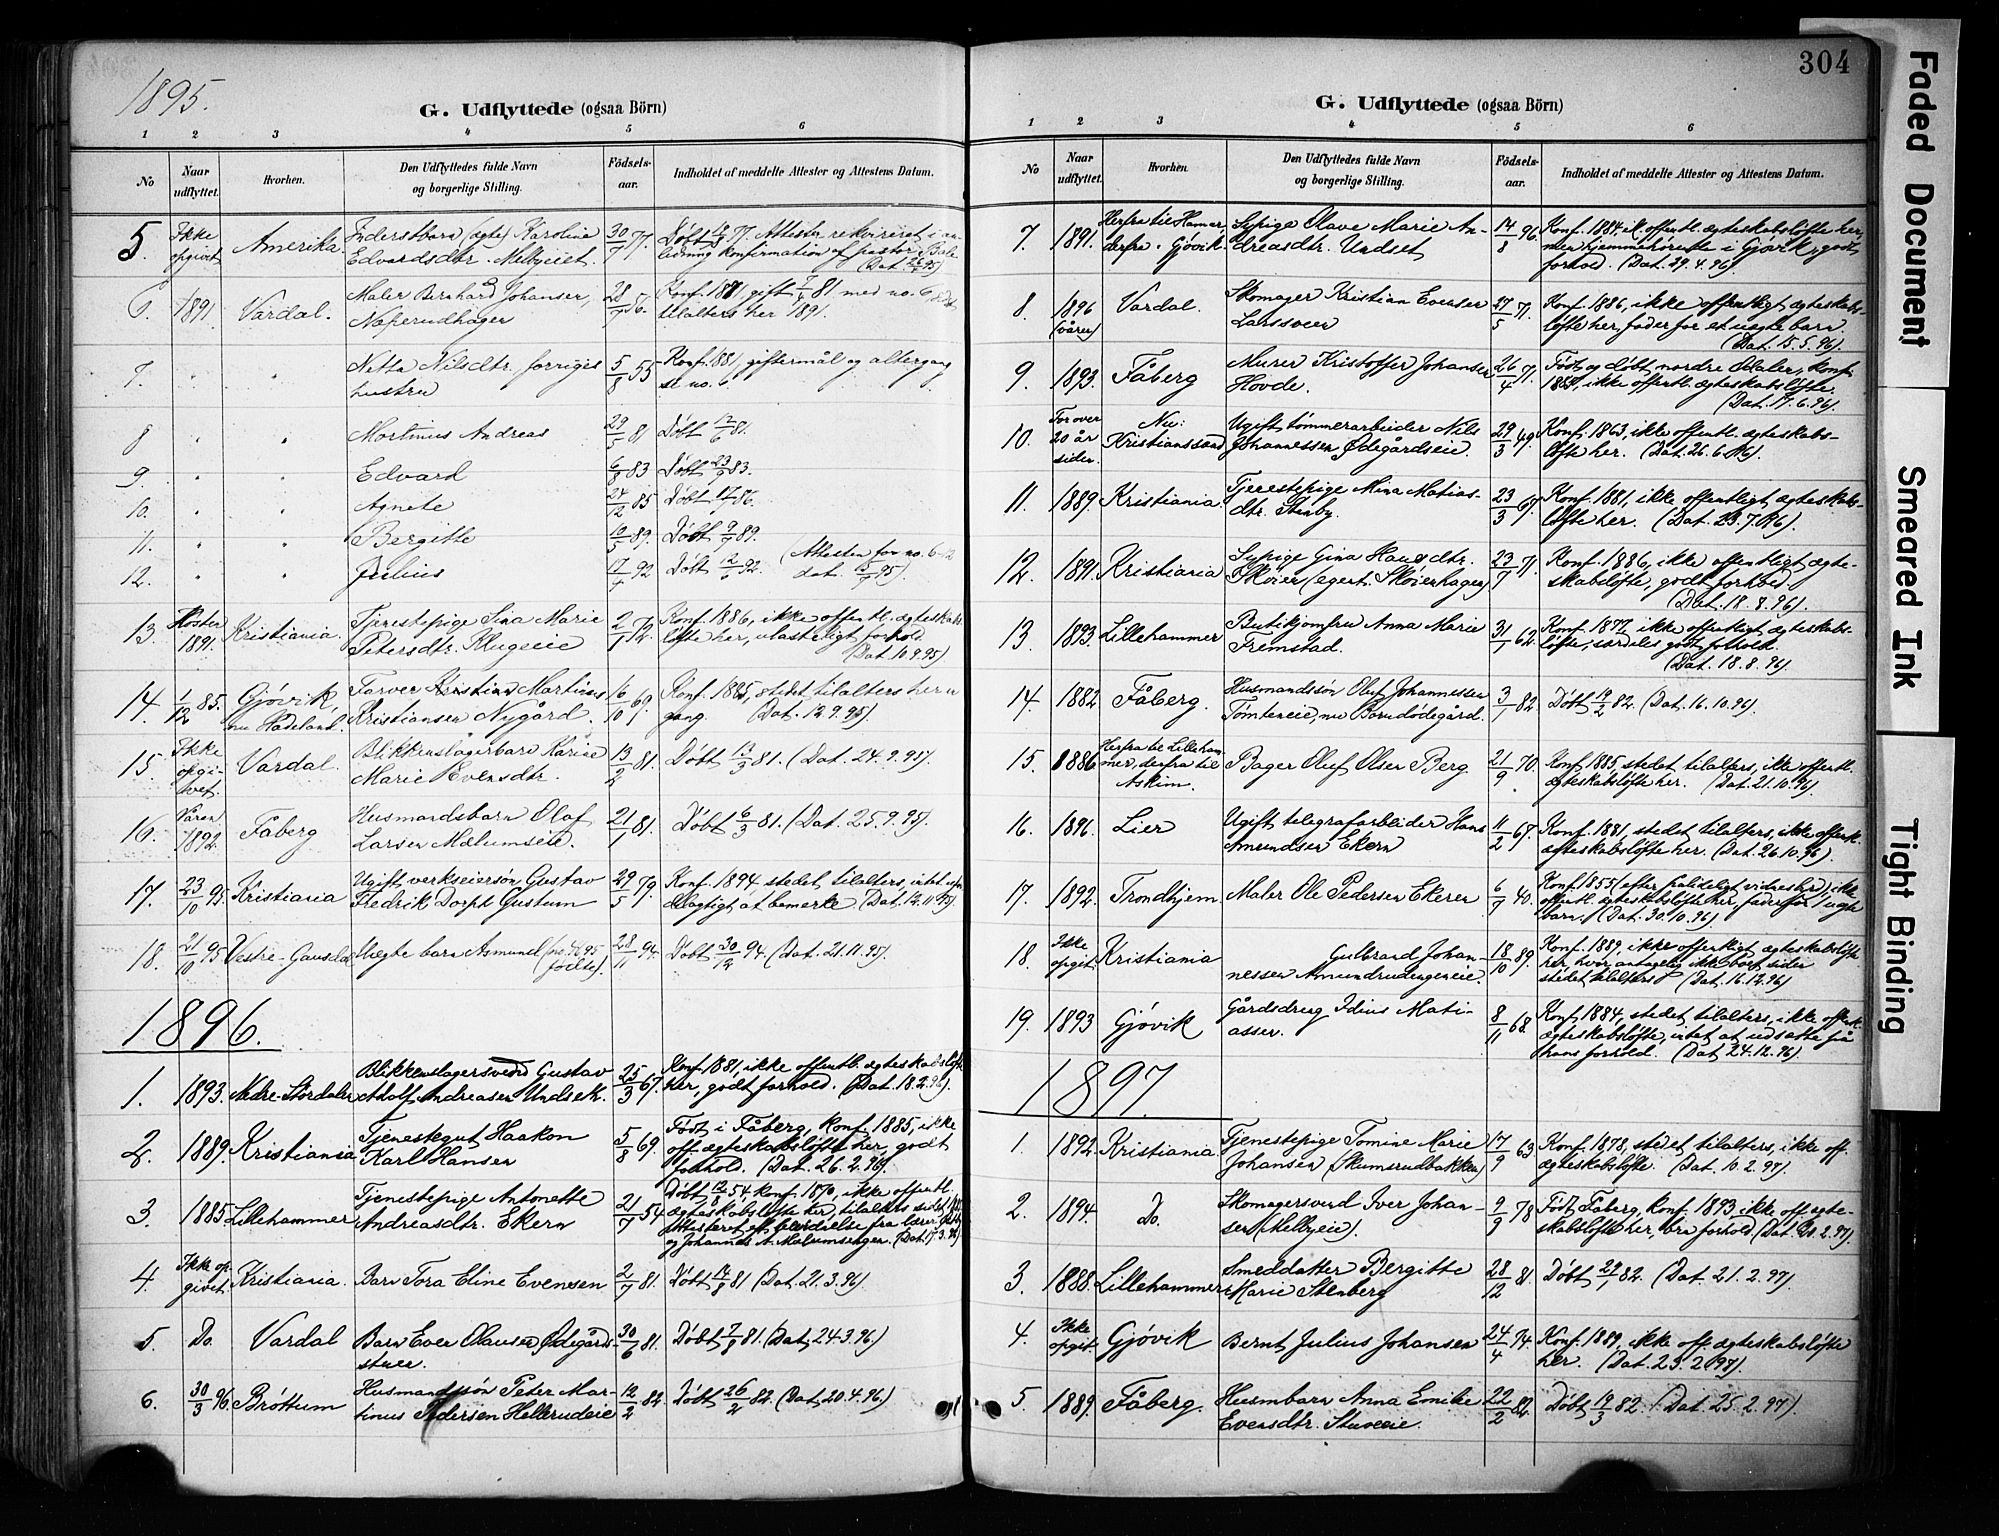 304
1895.
G. Udflyttede (ogsaa Börn)
1 2 3 4 5 6
No
Naar udflyttet.
Hvorhen.
Den Udflyttedes fulde Navn og borgerlige Stilling.
Födsels-aar.
Indholdet af meddelte Attester og Attestens Datum.
5 Ikke opgivet Amerika. Inderstbarn (ægte) Karoline 30/7 77. Døbt 77. Attesten rekvireret i an-
Edvardsdtr. Melbyeiet. ledning konfirmation af pastor
6. 1891. Vardal. Maler Bernhard Johansen, 28/7 56. Konf. 1871, gift 7/4 81 med no.
Næperudhagen tilalters her 1891.
7. " " Netta Nilsdtr. forriges 5/8 55 Konf. 1881, giftermål og altergang
hustru se no. 6.
8 " " Mortinus Andreas 29/5 81 Døbt 12/6 81.
9 " " Edvard 6/8 83 Døbt 23/9 83.
10. " " Agnete 24/12 85 Døbt 86.
11. " " Bergitte 12/5 89. Døbt 9/7 89.
12. " " Julius 17/4 92 Døbt 12/6 92. (Attesten for no. 6-12
dat. 95).
13. Høsten 1891. Kristiania. Tjenestepige Lina Marie 2/1 72. Konf. 1886, ikke offentl. ægteskabs-
Petersdtr. Klugeeie løfte her, ulasteligt forhold.
(Dat. 10.9.95)
14. 1/12 85. Gjøvik, nu Hadeland. Farver Kristian Martinus 16/10 69. Konf. 1885, stedet tilalters her
Kristiansen Nygård. gang. (Dat. 12.9.95).
15. Ikke opgivet. Vardal. Blikkenslagerbarn Karine 13/2 81. Døbt 13/3 81. (Dat. 24.9.95).
Marie Evensdtr.
16. Våren 1892. Fåberg Husmandsbarn Olaf 21/1 81. Døbt 6/3 81. (Dat. 25.9.95).
Larsen Mælumseie.
17. 23/10 95. Kristiania Ugift verkseiersøn Gustav 29/5 79. Konf. 1894, stedet tilalters, intet
Fredrik Dorph Gustum at bemerke (Dat. 12.11.95).
18. 21/10 95 Vestre-Gausdal Uægte barn Asmund 28/11 94. Døbt 30/12 94. (Dat. 21.11.95).
fødte).
1896.
1. 1893. Nedre-Stordalen Blikkenslagersvend Gustav 25/3 67. Konf. 1881, ikke offentl. ægteskabsløfte
Adolf Andreasen Undset. her, godt forhold. (Dat. 18.2.96).
2. 1889. Kristiania Tjenestegut Haakon 5/8 69. Født i Fåberg, Konf. 1885, ikke
Karl Hansen off. ægteskabsløfte her, godt
forhold. (Dat. 26.2.96).
3. 1885. Lillehammer Tjenestepige Antonette 21/7 54. Døbt 12/8 54 konf. 1870, ikke offentl.
Andreasdtr. Ekern ægteskabsløfte her, tilalters
Attesteret ef. beværdelse fra lærer
og Johannes A. Mælumsengen. (Dat. 17.3.96)
4. Ikke opgivet. Kristiania. Barn Tora Eline Evensen 2/7 81. Døbt 14/8 81 (Dat. 21.3.96).
5. Do. Vardal Barn Even Olausen Ødegård- 30/6 81. Døbt 7/8 81. (Dat. 24.3.96).
stuen.
6. 30/3 96. Brøttum Husmandssøn Peter Mar- 12/2 82. Døbt 26/2 82. (Dat. 20.4.96).
tinus Pedersen Hellerudeie
G. Udflyttede (ogsaa Börn)
1 2 3 4 5 6
No
Naar udflyttet.
Hvorhen.
Den Udflyttedes fulde Navn og borgerlige Stilling.
Födsels-aar.
Indholdet af meddelte Attester og Attestens Datum.
7. 1891. Herfra til Hamar, derfra Gjøvik. Sypige Olave Marie An- 14/8 96. Konf. 1884, ik. offentl. ægteskabsløfte her,
dreasdtr. Undset men hjemmehørende i Gjøvik, godt
forhold. (Dat. 29.4.96).
8. 1896 (våren) Vardal. Skomager Kristian Evensen 27/5 71. Konf. 1886, ikke offentligt ægteskabs-
Larssveen løfte her, fader for et uægte barn.
(Dat. 15.5.96).
9. 1893. Fåberg Murer Kristoffer Johansen 26/4 71. Født og døbt nordre Odalen, konf.
Hovde. ikke offentl. ægteskabsløfte.
(Dat. 17.6.96).
10. For over 20 år siden. Nu: Kristianssand Ugift tømmerarbeider Nils 29/3 49. Konf. 1863, ikke offentl. ægteskabs-
Johannessen Ødegårdseie. løfte her. (Dat. 26.6.96).
11. 1889. Kristiania. Tjenestepige Mina Matias- 23/3 67. Konf. 1881, ikke offentligt ægteskabs-
dtr. Stenby. løfte her. (Dat. 23.7.96).
12. 1891. Kristiania Sypige Gina Hansdtr. 23/7 71. Konf. 1886, ikke offentligt ægte-
Skøien (egent. Skøienhagen) skabsløfte, godt forhold.
(Dat. 18.8.96).
13. 1893. Lillehammer Butikjomfru Anna Marie 31/1 62. Konf. 1877, ikke offentligt ægteskabs-
Fremstad. løfte, særdeles godt forhold.
(Dat. 18.8.96).
14. 1882. Fåberg. Husmandssøn Oluf Johannessen 3/1 82. Døbt 19/2 82. (Dat. 16.10.96).
Tømteeie, nu Borudødegård.
15. 1886 Herfra til Lilleham-mer, derfra til Askim. Bager Oluf Olsen Berg 21/9 70. Konf. 1885 stedet tilalters, ikke offentl.
ægteskabsløfte her. (Dat. 21.10.96).
16. 1896. Lier Ugift telegrafarbeider Hans 11/2 67. Konf. 1881, stedet tilalters, ikke offentl.
Amundsen Ekern ægteskabsløfte her. (Dat. 26.10.96)
17. 1892. Trondhjem Maler Ole Pedersen Ekeren 6/7 40. Konf. 1855 (efter pålideligt vidnesbyrd), ikke
offentl. ægteskabsløfte her, fader for 1 uægte
barn. (Dat. 30.10.96).
18. Ikke opgit. Kristiania Gulbrand Johan- 18/10 89. Konf. 1889, ikke offentligt ægteskabsløfte
nessen Amundrudengeneie. her, hvor antagelig ikke boet siden
stedet tilalters (Dat. 16.12.96)
19. 1893 Gjøvik Gårdsdreng Idius Mati- 8/11 68. Konf. 1884, stedet tilalters, ikke offent.
assen. ægteskabsløfte, intet at udsætte på
hans forhold. (Dat. 24.12.96).
1897.
1. 1892. Kristiania. Tjenestepige Tomine Marie 17/9 63 Konf. 1878, stedet tilalters, ikke off.
Johansen (Skumsrudbakken) ægteskabsløfte. (Dat. 10.2.97).
2. 1894. Do. Skomagersvend Iver Johan- 9/9 78 Født Fåberg, konf. 1893, ikke off. ægte-
sen (Melbyeie). skabsløfte her, bra forhold. (Dat. 2.97).
3. 1888. Lillehammer Smeddatter Bergitte 28/12 81. Døbt 29/1 82. (Dat. 21.2.97).
Marie Stenberg
4. Ikke opgit. Gjøvik Bernt Julius Johansen 24/4 74. Konf. 1889, ikke off. ægteskabsløfte
her. (Dat. 23.2.97).
5. 1889. Fåberg. Husmbarn Anna Emilie 22/2 82. Døbt 19/3 82. (Dat. 25.2.97)
Evensdtr. Stuveeie.
Faded Document
Smeared Ink
Tight Binding